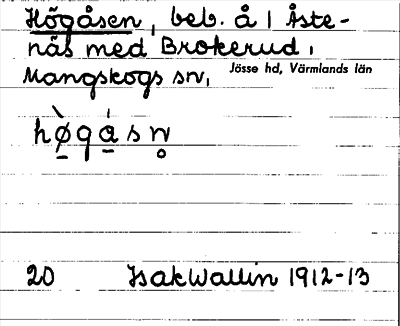 Högåsen, beb. å 1 Åste-
näs med Brokerud,
Mangskogs sn,
Jösse hd, Värmlands län
hø̀gåsn̥
20 Isak Wallin 1912-13